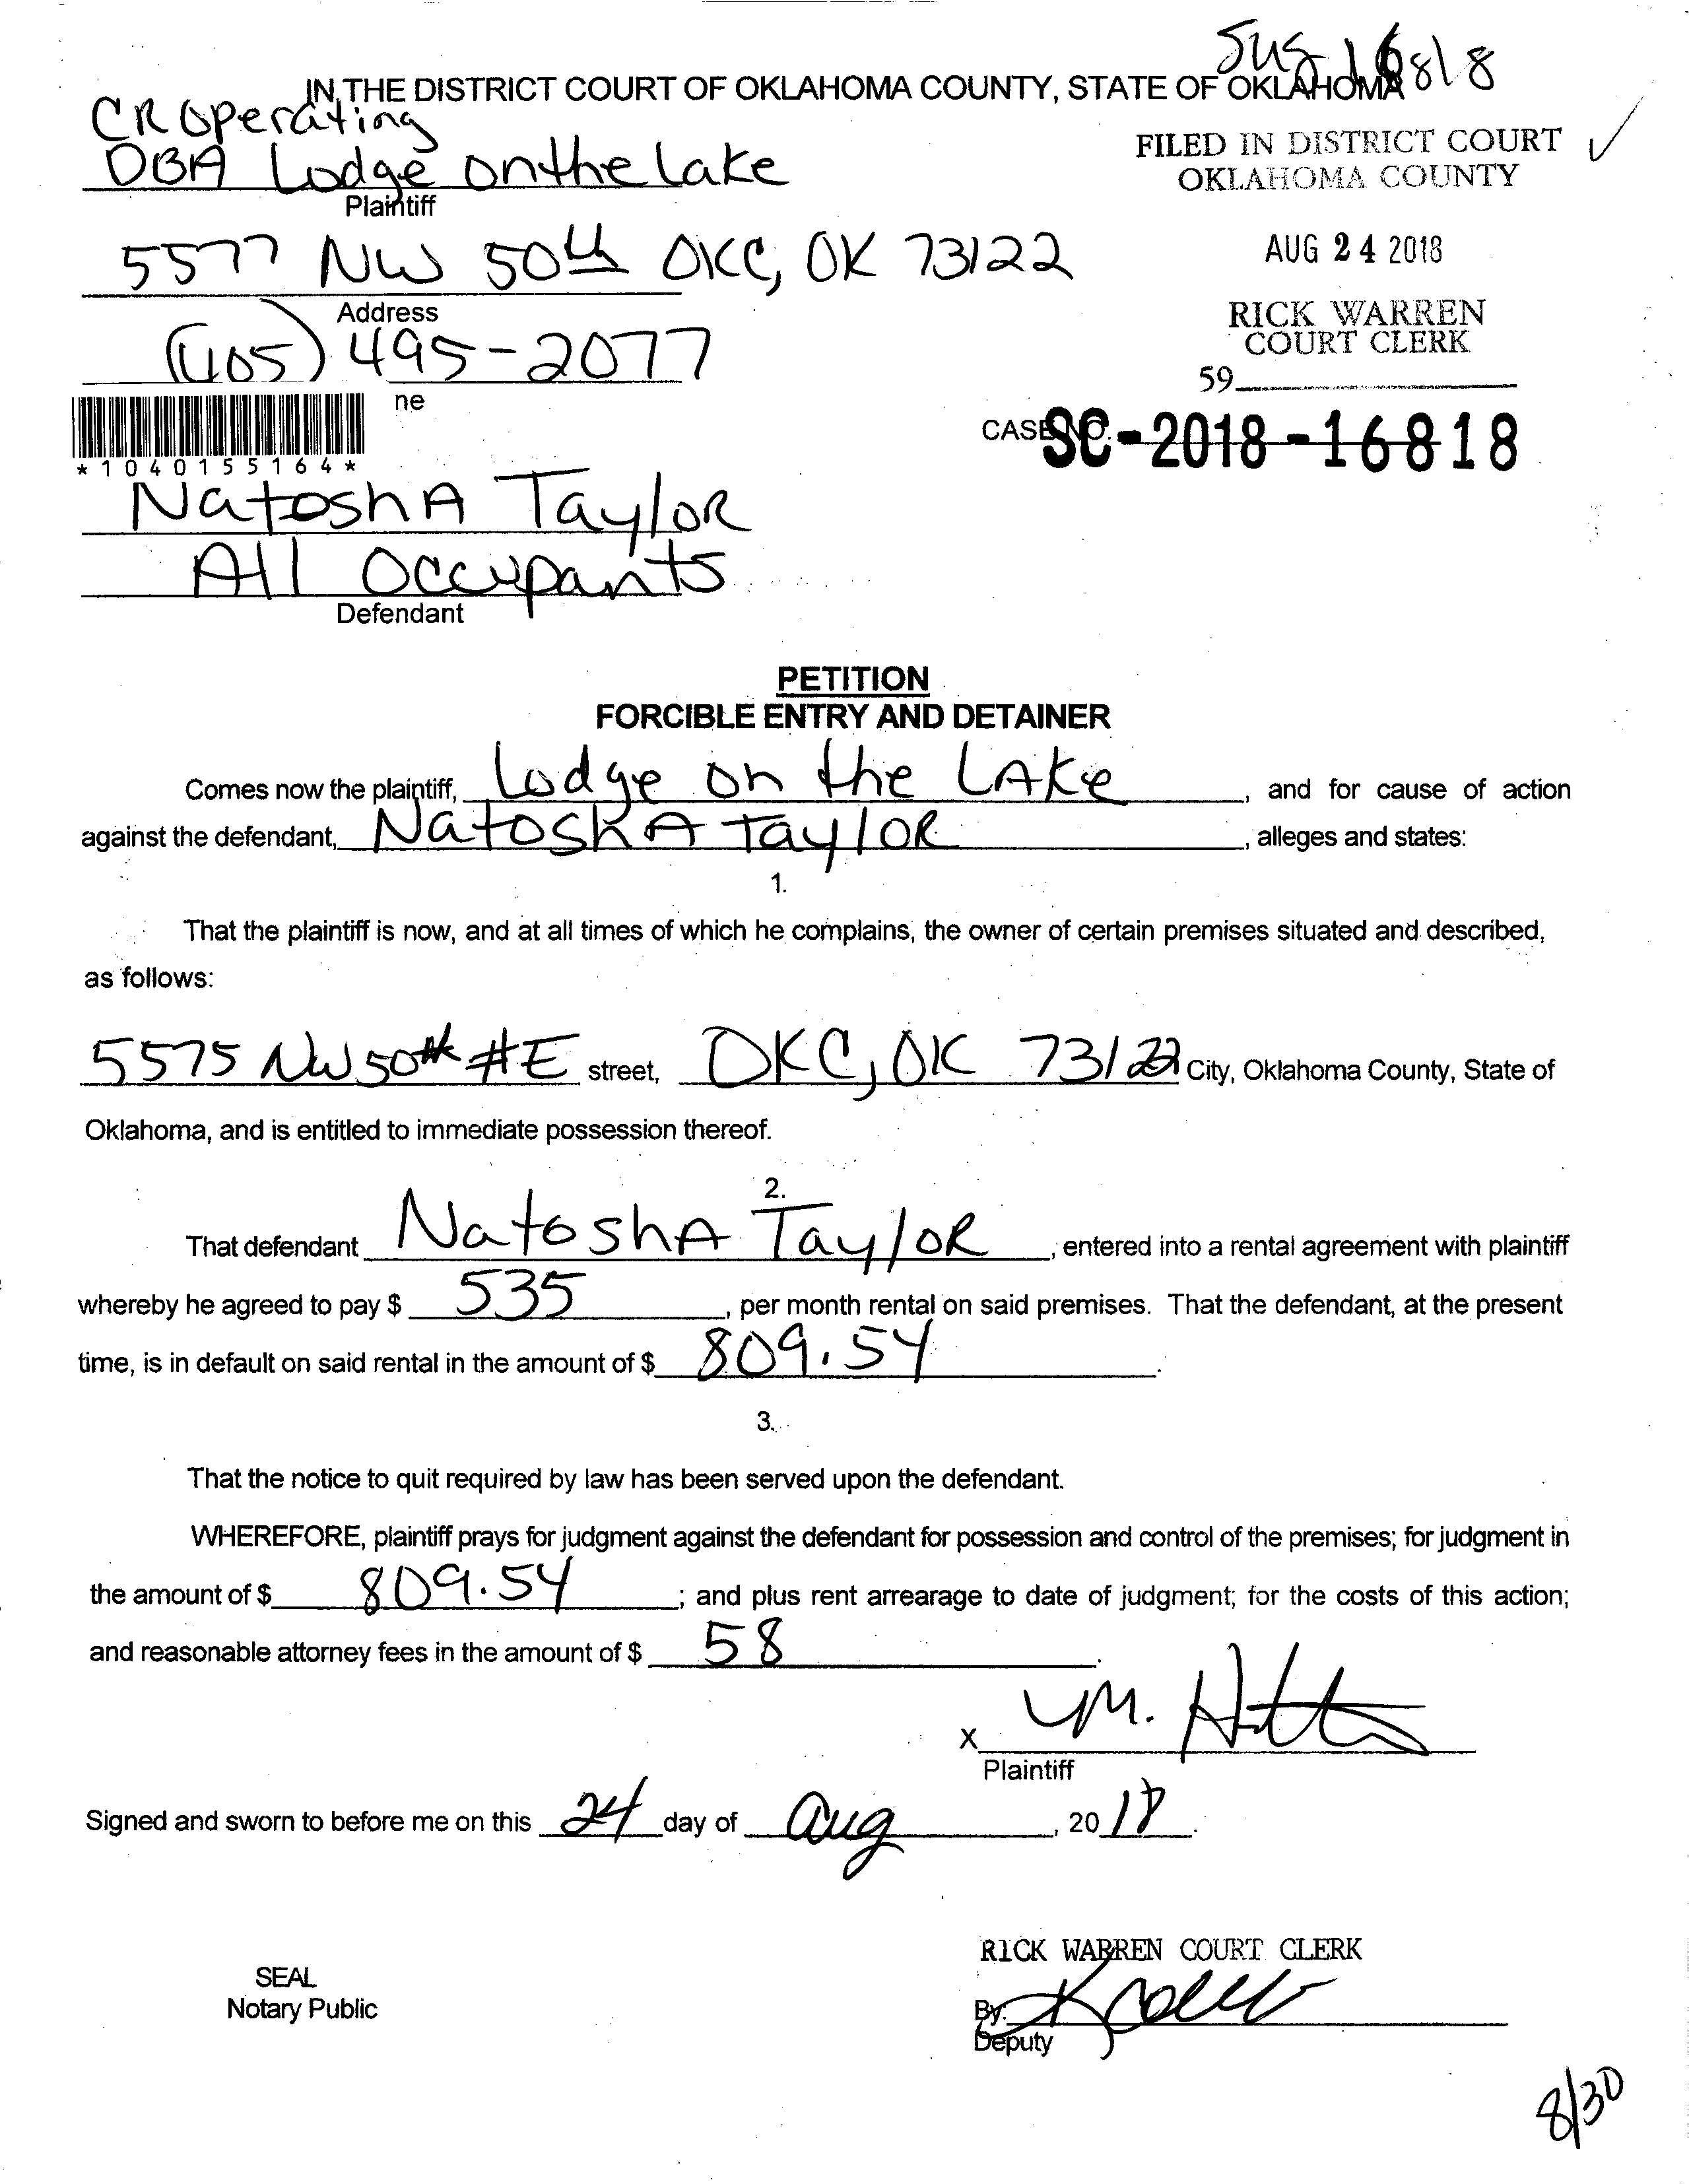 16818
IN THE DISTRICT COURT OF OKLAHOMA COUNTY, STATE OF OKLAHOMA
CR Operating
DBA Lodge on the Lake
Plaintiff
FILED IN DISTRICT COURT
OKLAHOMA COUNTY
5577 NW 50th OKC, OK 73122
Address
AUG 24 2018
(405) 495-2077
ne
RICK WARREN
COURT CLERK
59
*1040155164*
CASE NO. SC-2018-16818
NatoshA TayloR
All Occupants
Defendant
PETITION
FORCIBLE ENTRY AND DETAINER
Comes now the plaintiff, Lodge on the LAke, and for cause of action
against the defendant, NatoshA TayloR, alleges and states:
1.
That the plaintiff is now, and at all times of which he complains, the owner of certain premises situated and described,
as follows:
5575 NW 50th #E street, OKC, OK 73122 City, Oklahoma County, State of
Oklahoma, and is entitled to immediate possession thereof.
2.
That defendant NatoshA TayloR, entered into a rental agreement with plaintiff
whereby he agreed to pay $ 535, per month rental on said premises. That the defendant, at the present
time, is in default on said rental in the amount of $ 809.54.
3.
That the notice to quit required by law has been served upon the defendant.
WHEREFORE, plaintiff prays for judgment against the defendant for possession and control of the premises; for judgment in
the amount of $ 809.54; and plus rent arrearage to date of judgment; for the costs of this action;
and reasonable attorney fees in the amount of $ 58.
X M.
Plaintiff
Signed and sworn to before me on this 24 day of Aug, 2018.
RICK WARREN COURT CLERK
SEAL
Notary Public
By:
Deputy
8/30